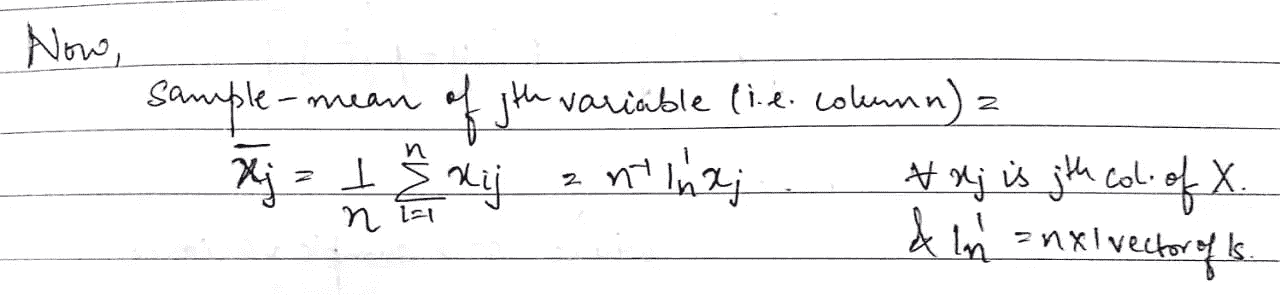 Now,
sample-mean of jth variable (i.e. column) =
x̄j = 1/n Σ_{i=1}^{n} xij = n⁻¹ 1n' xj . ∀ xj is jth col. of X.
& 1n' = n×1 vector of 1s.